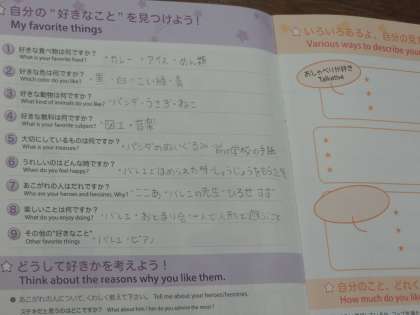 ☆自分の“好きなこと”を見つけよう！
My favorite things
① 好きな食べ物は何ですか？
What is your favorite food?
・カレー ・アイス ・めん類
② 好きな色は何ですか？
Which color do you like?
・黒 ・白 ・こい緑 ・青
③ 好きな動物は何ですか？
What kind of animals do you like?
・パンダ ・うさぎ ・ねこ
④ 好きな教科は何ですか？
What is your favorite subject?
・図工 ・音楽
⑤ 大切にしているものは何ですか？
What is your treasure?
・パンダのぬいぐるみ 学校の手紙
⑥ うれしいのはどんな時ですか？
When do you feel happy?
・バレエでほめられた時
⑦ あこがれの人はだれですか？
Who are your heroes and heroines, Why?
・バレエの先生 ・ひろせすず
⑧ 楽しいことは何ですか？
What do you enjoy doing?
・バレエ ・おとまり会 人形で遊ぶこと
⑨ その他の“好きなこと”
Other favorite things
・バレエ ・ピアノ
☆どうして好きかを考えよう！
Think about the reasons why you like them.
● あこがれの人について、くわしく教えて下さい。 Tell me about your heroes/heroines.
ステキだと思うのはどこですか？ What about him / her do you admire the most?
☆いろいろあるよ、自分の見
Various ways to describe your
おしゃべりが好き
Talkative
☆自分のこと、どれく
How much do you like